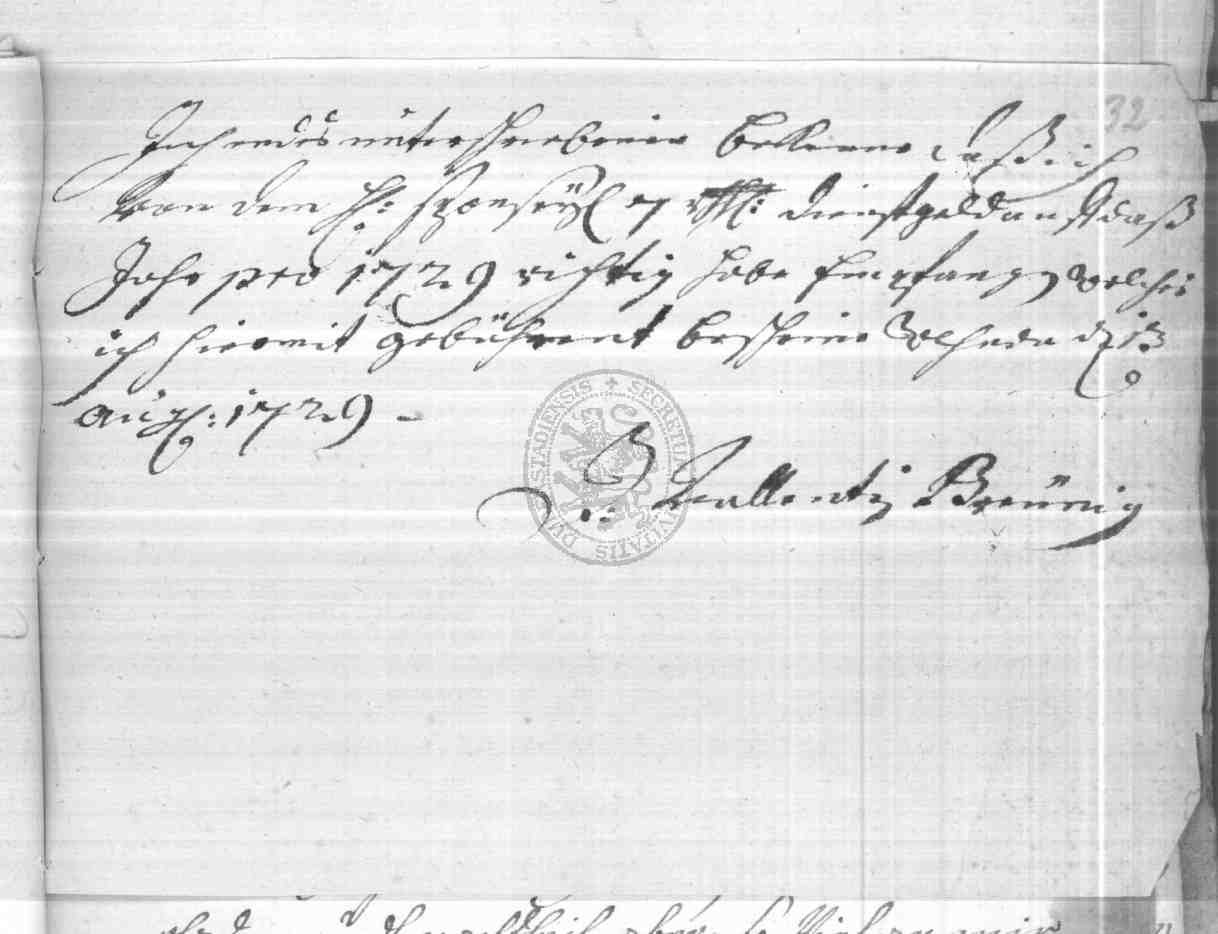 32
Ich endes unterschriebener bekenne daß ich
von dem H: 7 dienstgeld daß
Jahr pro 1729 richtig habe Empfang welches
ich hiermit gebührent bescheine d 13
aug: 1729
Vallentin Breünig
SECRETUM CIVITATIS DARMSTADIENSIS